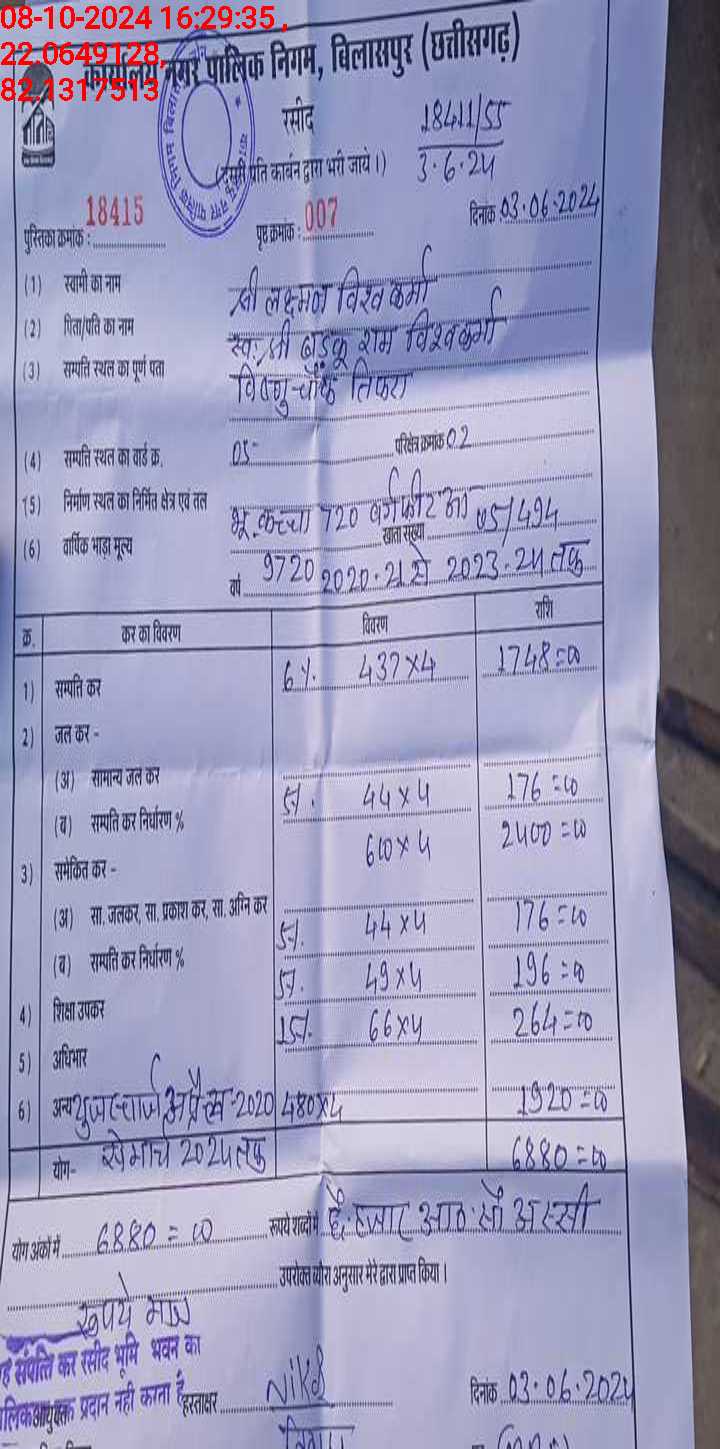 08-10-2024 16:29:35,
22.0649128,
82.1317513
कार्यालय नगर पालिक निगम, बिलासपुर (छत्तीसगढ़)
रसीद
18411/55
3.6.24
(दूसरी प्रति कार्बन द्वारा भरी जाये।)
पुस्तिका क्रमांक : 18415 पृष्ठ क्रमांक : 007 दिनांक 03.06.2024
(1) स्वामी का नाम श्री लक्ष्मन विश्वकर्मा
(2) पिता/पति का नाम स्व. श्री राम विश्वकर्मा
(3) सम्पत्ति स्थल का पूर्ण पता विष्णु-चौक तिफरा
(4) सम्पत्ति स्थल का वार्ड क्र. 05 परिक्षेत्र क्रमांक 02
(5) निर्माण स्थल का निर्मित क्षेत्र एवं तल भू. कच्चा 720 वर्गफीट
(6) वार्षिक भाड़ा मूल्य खाता संख्या 05/494
9720 वर्ष 2020-21 से 2023-24 तक
क्र. कर का विवरण विवरण राशि
1) सम्पत्ति कर 6%. 437x4 1748=00
2) जल कर -
(अ) सामान्य जल कर
(ब) सम्पत्ति कर निर्धारण % 44x4 176=00
600x4 2400=00
3) समेकित कर -
(अ) सा. जलकर, सा. प्रकाश कर, सा. अग्नि कर 44x4 176=00
(ब) सम्पत्ति कर निर्धारण % 49x4 196=00
4) शिक्षा उपकर 15%. 66x4 264=00
5) अधिभार
6) अन्य युजरचार्ज अप्रैल-2020 480x4 1920=00
से मार्च 2024 तक
योग- 6880=00
योग अंकों में 6880=00 रूपये शब्दों में छै: हजार आठ सौ अस्सी
उपरोक्त ब्यौरा अनुसार मेरे द्वारा प्राप्त किया।
रूपये मात्र
संपत्ति कर रसीद भूमि भवन का
प्रदान नही करता है
हस्ताक्षर दिनांक 03.06.2024